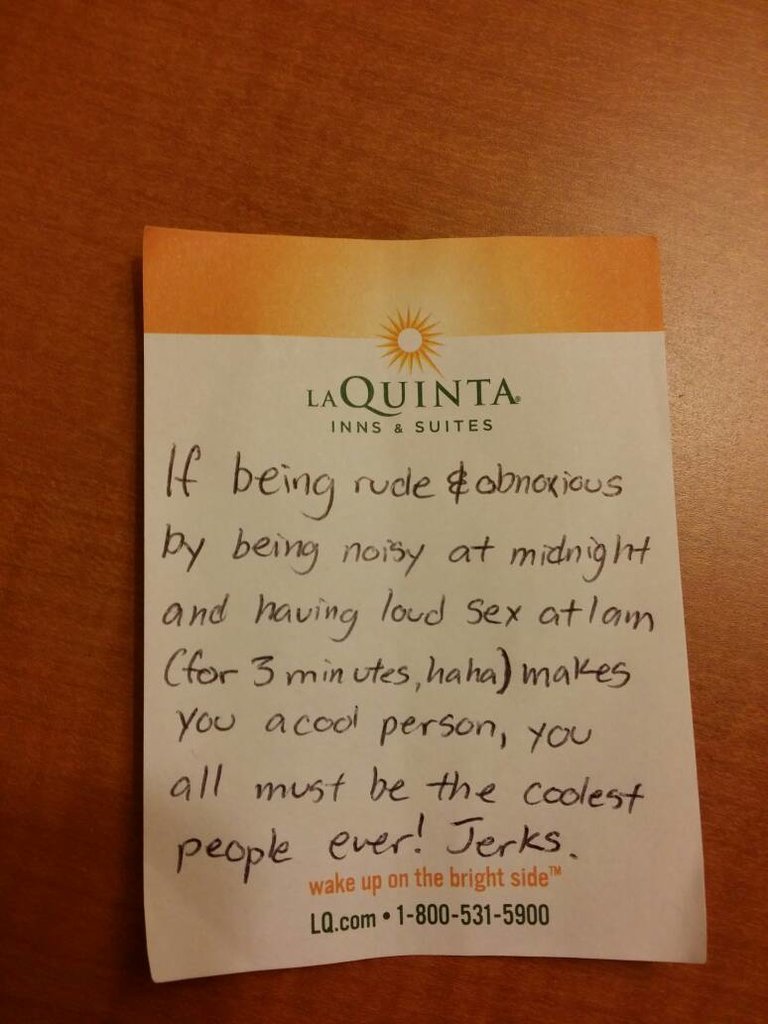 LAQUINTA®
INNS & SUITES
If being rude & obnoxious
by being noisy at midnight
and having loud sex at 1am
(for 3 minutes, haha) makes
you a cool person, you
all must be the coolest
people ever! Jerks.
wake up on the bright side™
LQ.com • 1-800-531-5900